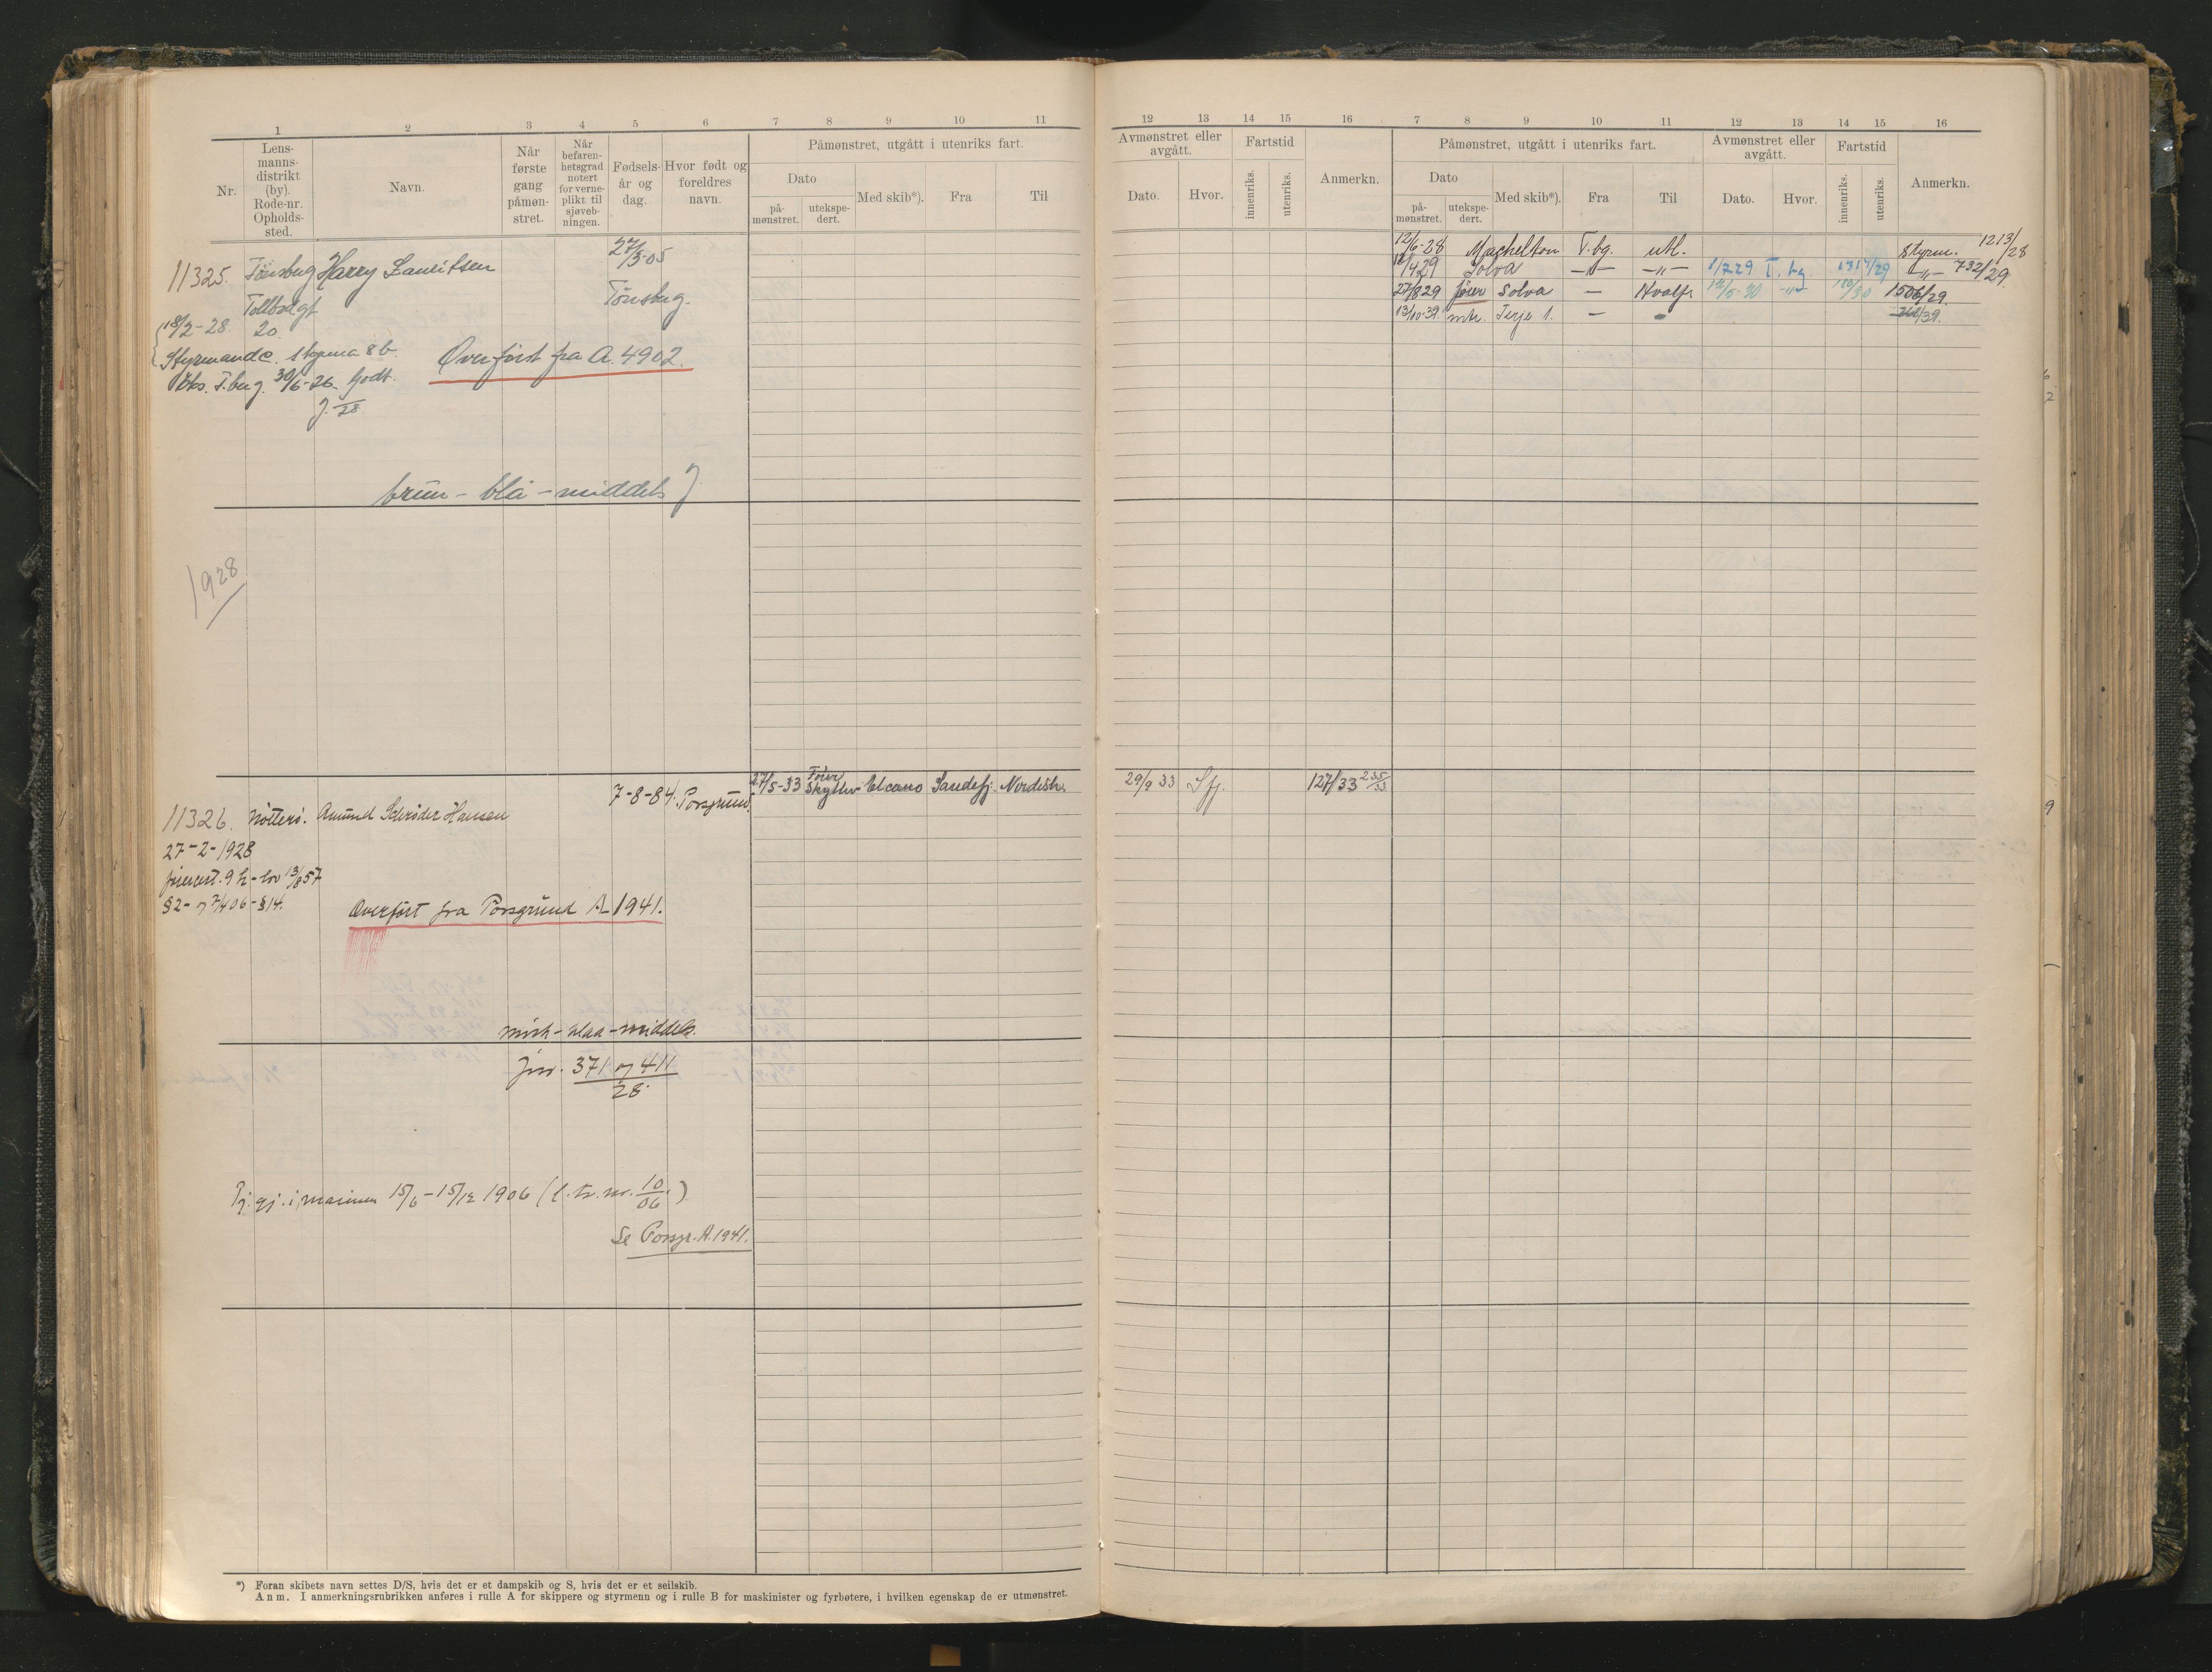 1 2 3 4 5 6 7 8 9 10 11
Nr.
Lens-
manns-
distrikt
(by).
Rode-nr.
Opholds-
sted.
Navn.
Når
første
gang
påmøn-
stret.
Når
befaren-
hetsgrad
notert
for verne-
plikt til
sjøveb-
ningen.
Fødsels-
år og
dag.
Hvor født og
foreldres
navn.
Påmønstret, utgått i utenriks fart.
Dato
på-
mønstret.
utekspe-
dert.
Med skib*).
Fra
Til
12 13 14 15 16 7 8 9 10 11 12 13 14 15 16
Avmønstret eller
avgått.
Dato.
Hvor.
Fartstid
innenriks.
utenriks.
Anmerkn.
Påmønstret, utgått i utenriks fart.
Dato
på-
mønstret.
utekspe-
dert.
Med skib*).
Fra
Til
Avmønstret eller
avgått.
Dato.
Hvor.
Fartstid
innenriks.
utenriks.
Anmerkn.
11325. Tönsbug Harry Lauritsen 27/3-05
Tollbodgt 20 Tönsbug.
18/2-28.
Styrmandc. 8b.
T.berg. 30/6-26. Godt.
J. 28.
Overført fra A. 4902.
brun - blå - middels
12/6-28 Machelton T.bg. utl. styrm. 1213/28
12/4 29 Solva -"- -"- 1/7 29 T.bg 1314/29 -"- 732/29.
27/8 29 føier Solva - Hvalf. 12/5-30 -"- /30 1506/29.
13/10-39. mtr. Terje 1. - /39.
1928
11326. Nötterö. Amund Schrøder Hansen 7-8-84. Porsgrund.
27/5-33 Føier Skytter Elcano Sandefj. Nordish.
29/9 33 Sfj. 127/33 235/33
27-2-1928
føiercert. 9 h - lov 13/8 57
§2- og 7/4 06 - §14.
Overført fra Porsgrund A 1941.
mörk - blaa - middels.
jnr. 371 og 411
28.
Tj. gj. i marinen 15/6 - 15/12 1906 (l. tr. nr. 10/06.)
Se Porsgr. A. 1941.
*) Foran skibets navn settes D/S, hvis det er et dampskib og S, hvis det er et seilskib.
Anm. I anmerkningsrubrikken anføres i rulle A for skippere og styrmenn og i rulle B for maskinister og fyrbøtere, i hvilken egenskap de er utmønstret.